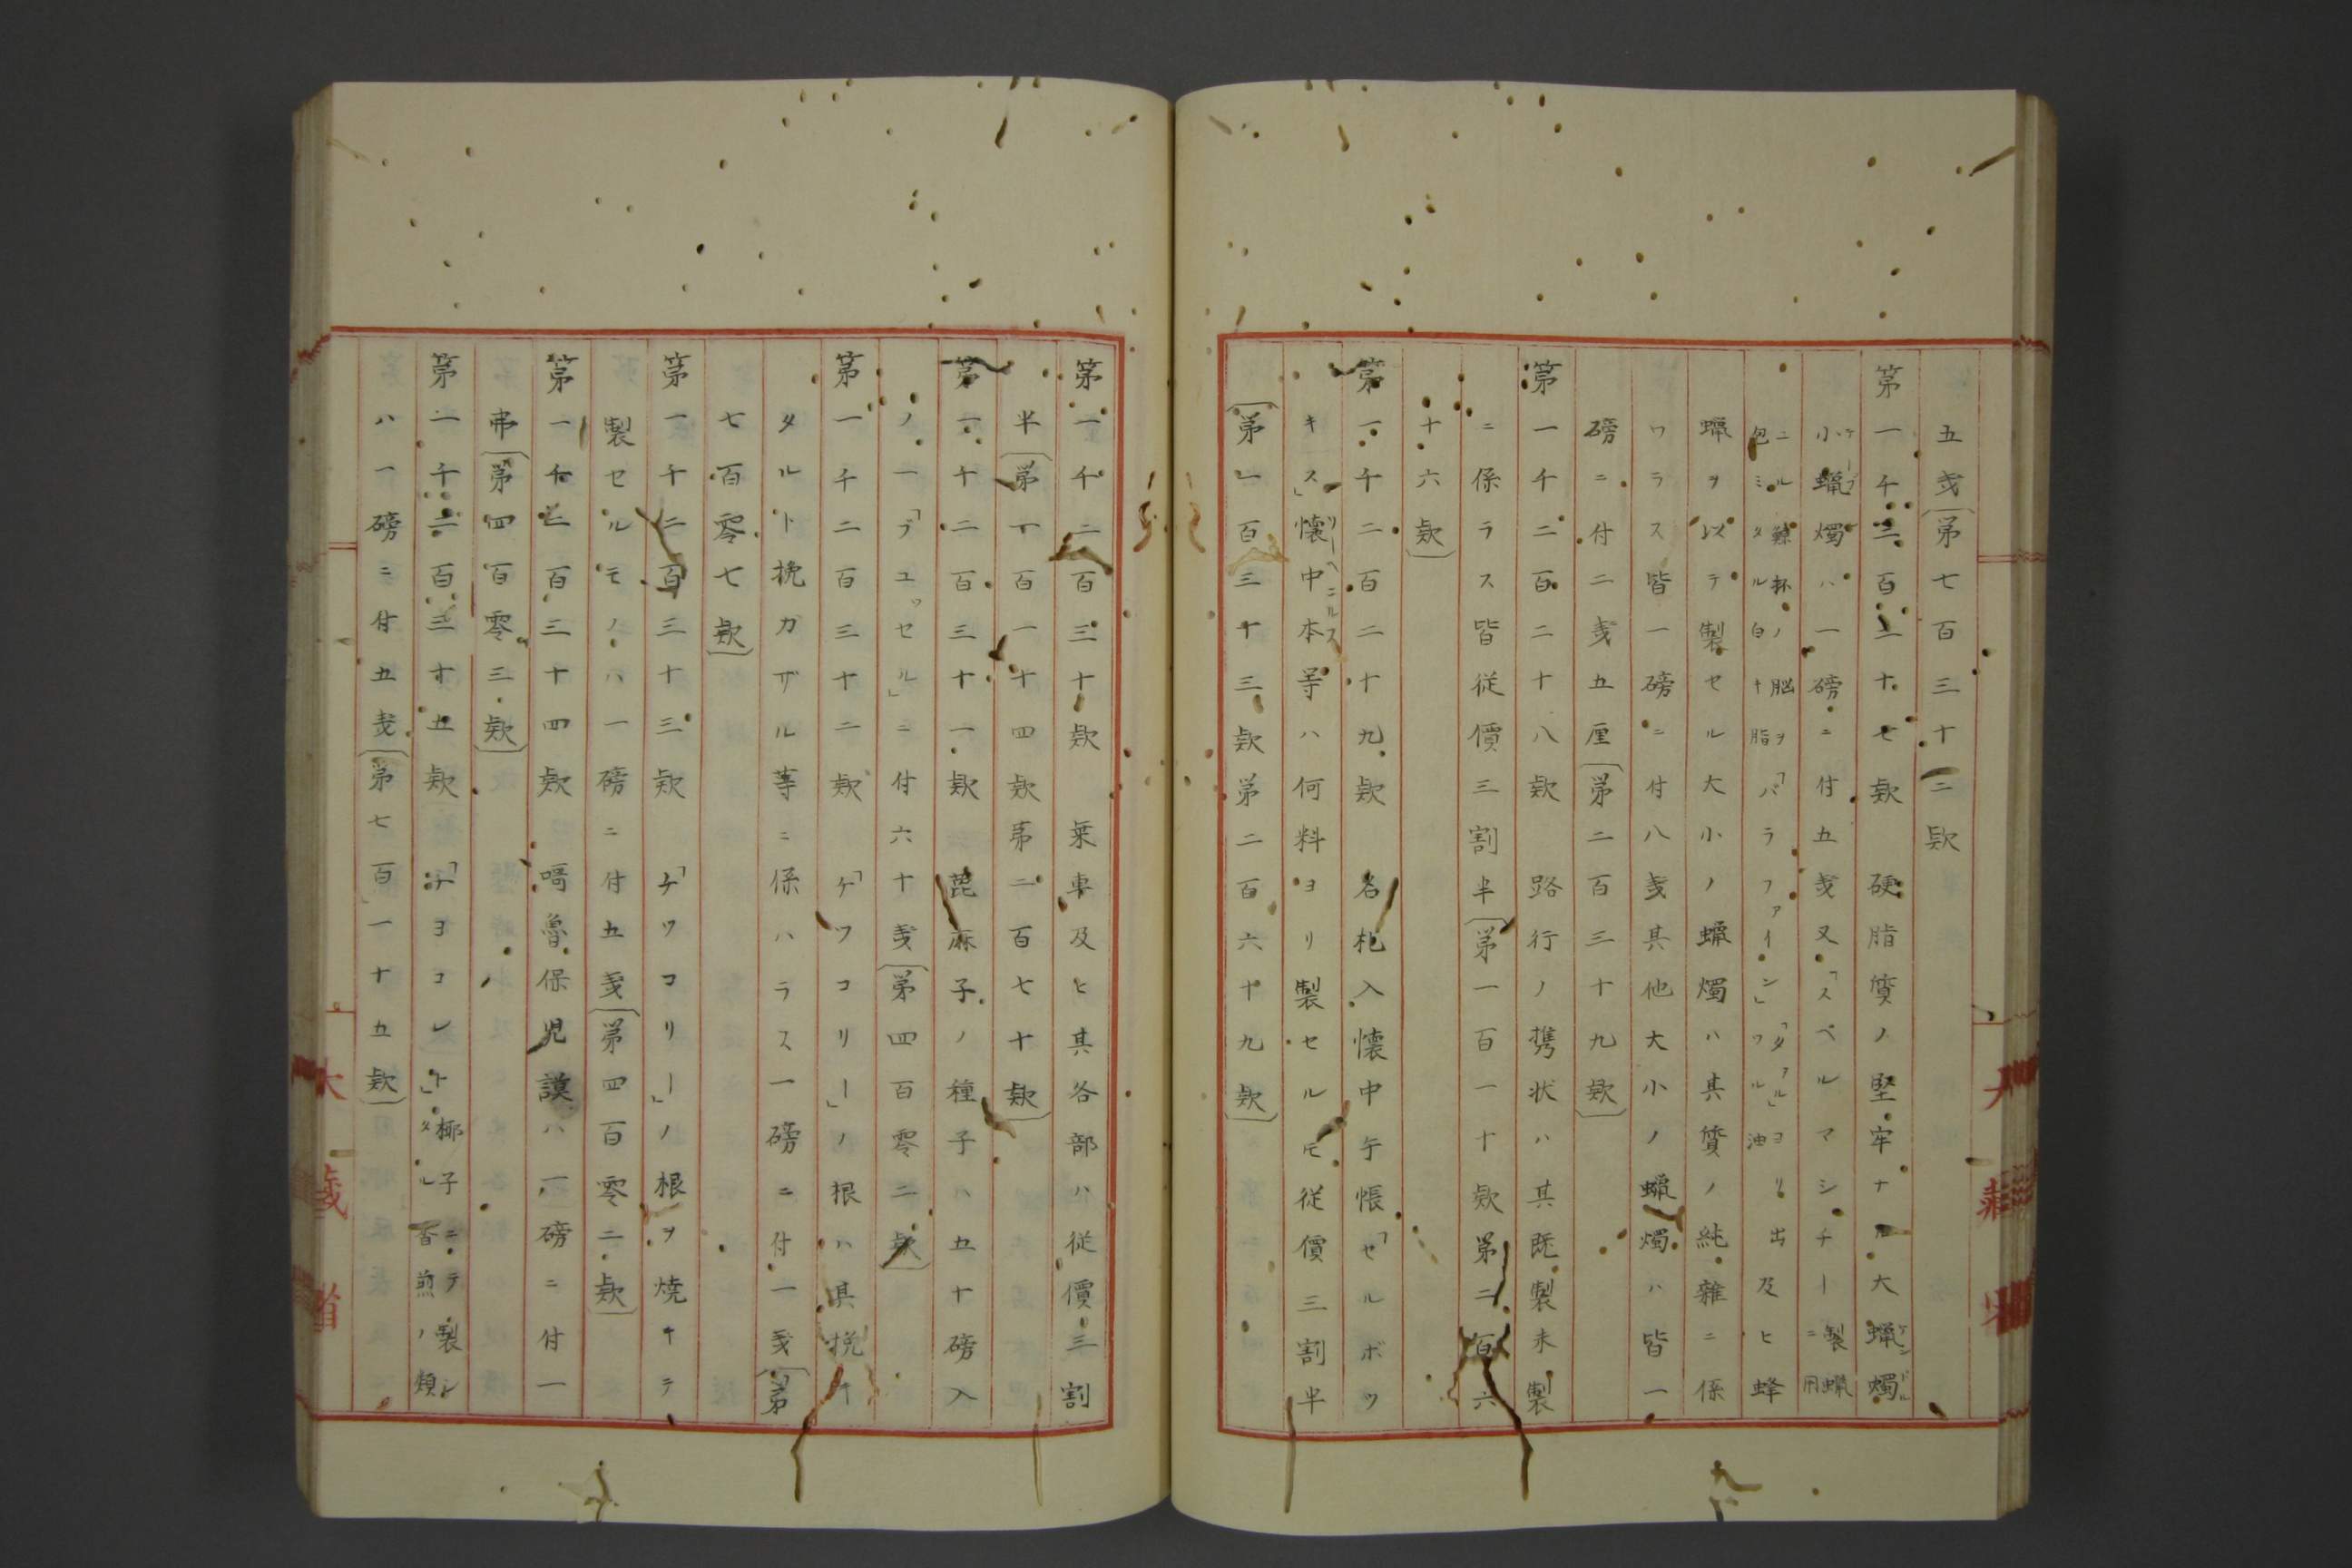 五戔〔第七百三十二款
第一千二百二十七款 硬脂質ノ堅牢ナル大蝋燭
小蝋燭ハ一磅ニ付五戔又「スペルマシチー製蝋ニ用
ニル鯨杯ノ脳ヲ「バラファイン」「タァル」ヨリ出及ヒ蜂
包ミタル白キ脂 フル油
蝋ヲ以テ製セル大小ノ蝋燭ハ其質ノ純雜ニ係
ワラス皆一磅ニ付八戔其他大小ノ蝋燭ハ皆一
磅ニ付二戔五厘〔第二百三十九款〕
第一千二百二十八款 路行ノ携状ハ其既製未製
ニ係ラス皆従價三割半〔第一百一十款第二百六
十六款〕
第一千二百二十九款 名札入懐中午帳「セルボツ
キス」懐中本等ハ何料ヨリ製セルモ従價三割半
〔第一百三十三款第二百六十九款〕
第一千二百三十款 乗車及ヒ其各部ハ従價三割
半〔第一百一十四款第二百七十款〕
第一千二百三十一款 蓖麻子ノ種子ハ五十磅入
ノ一「ブユッセル」ニ付六十戔〔第四百零二款〕
第一千二百三十二款 「ケツコリー」ノ根ハ其挽キ
タルト挽カザル等ニ係ハラス一磅ニ付一戔〔第
七百零七款〕
第一千二百三十三款 「ケツコリー」ノ根ヲ焼キテ
製セルモノハ一磅ニ付五戔〔第四百零二款〕
第一千二百三十四款 嗬魯保児謨ハ一磅ニ付一
弗〔第四百零三款〕
第一千二百三十五款 「チヨコレート」椰子ニテ製シタル香煎ノ類
ハ一磅ニ付五戔〔第七百一十五款〕
大蔵省